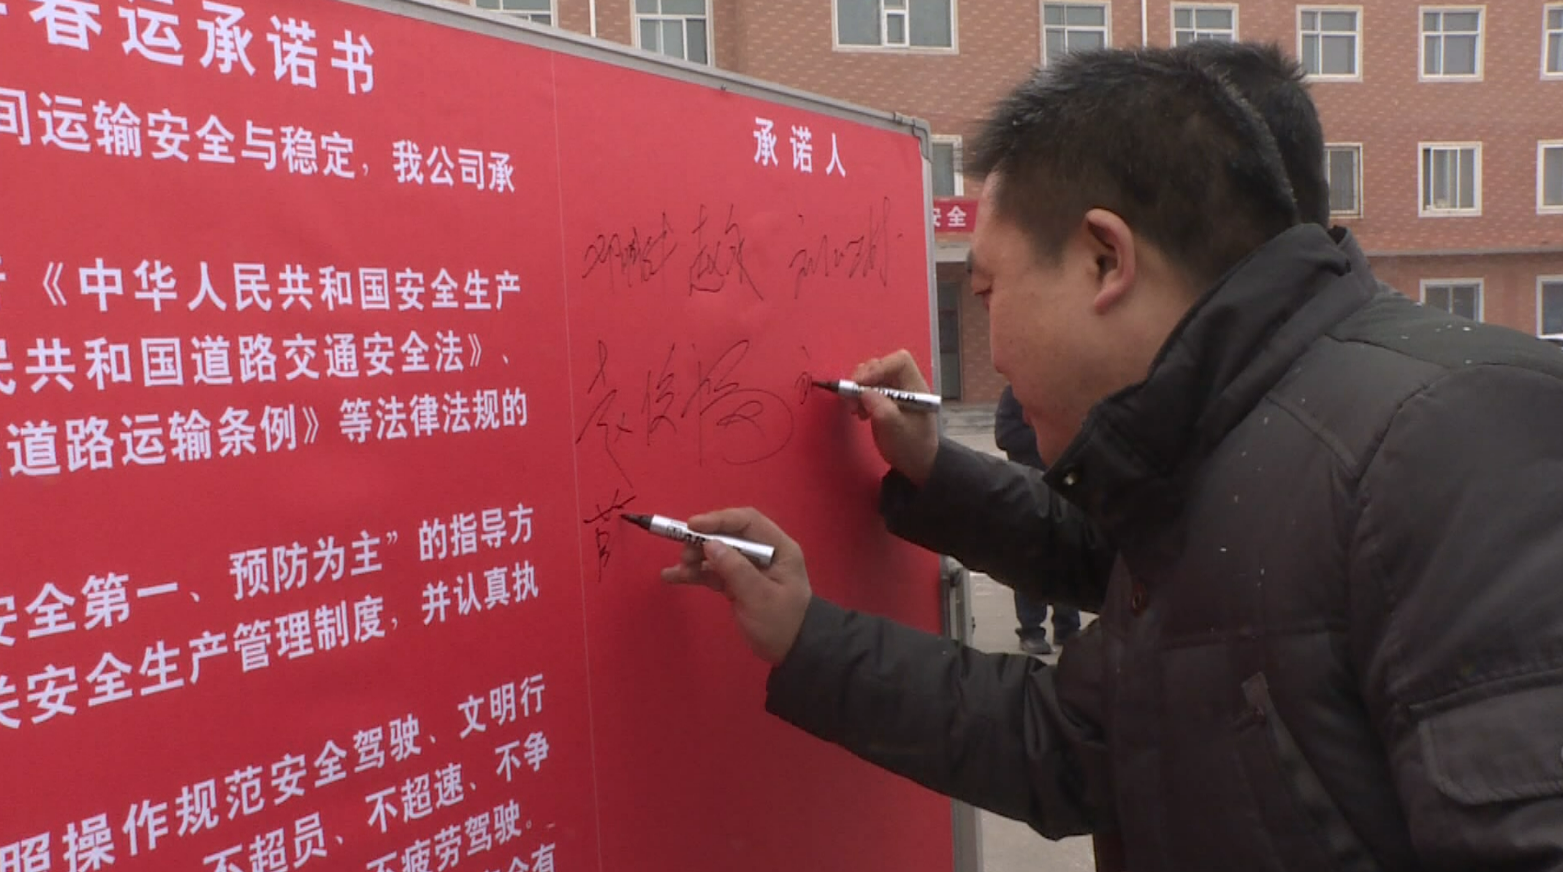 春运承诺书
间运输安全与稳定，我公司承
《中华人民共和国安全生产
民共和国道路交通安全法》、
道路运输条例》等法律法规的
安全第一、预防为主”的指导方
关安全生产管理制度，并认真执
照操作规范安全驾驶、文明行
不超员、不超速、不争
不疲劳驾驶。
承诺人
赵永
袁俊福
安全